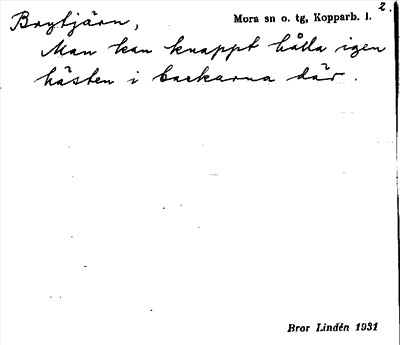 Brytjärn, Mora sn o. tg, Kopparb. l. 2.
Man kan knappt hålla igen
hästen i backarna där.
Bror Lindén 1931